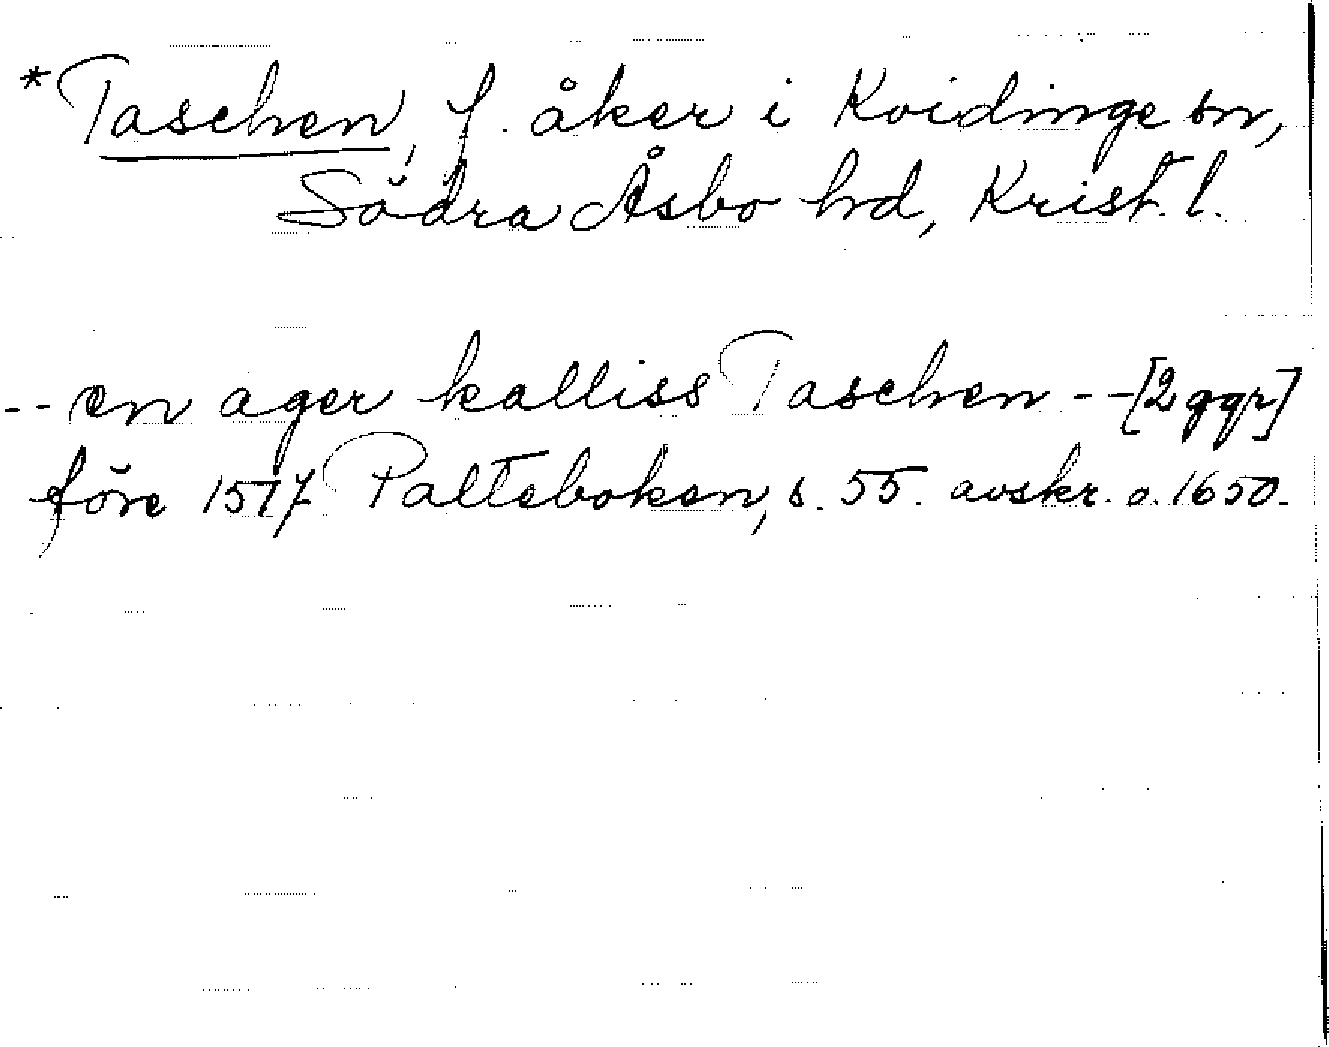 *Taschen, f. åker i Kvidinge sn,
Södra Åsbo hd, Krist. l.
-- en ager kalliss Taschen -- [2 ggr]
före 1517 Palteboken, s. 55. avskr. o. 1650.